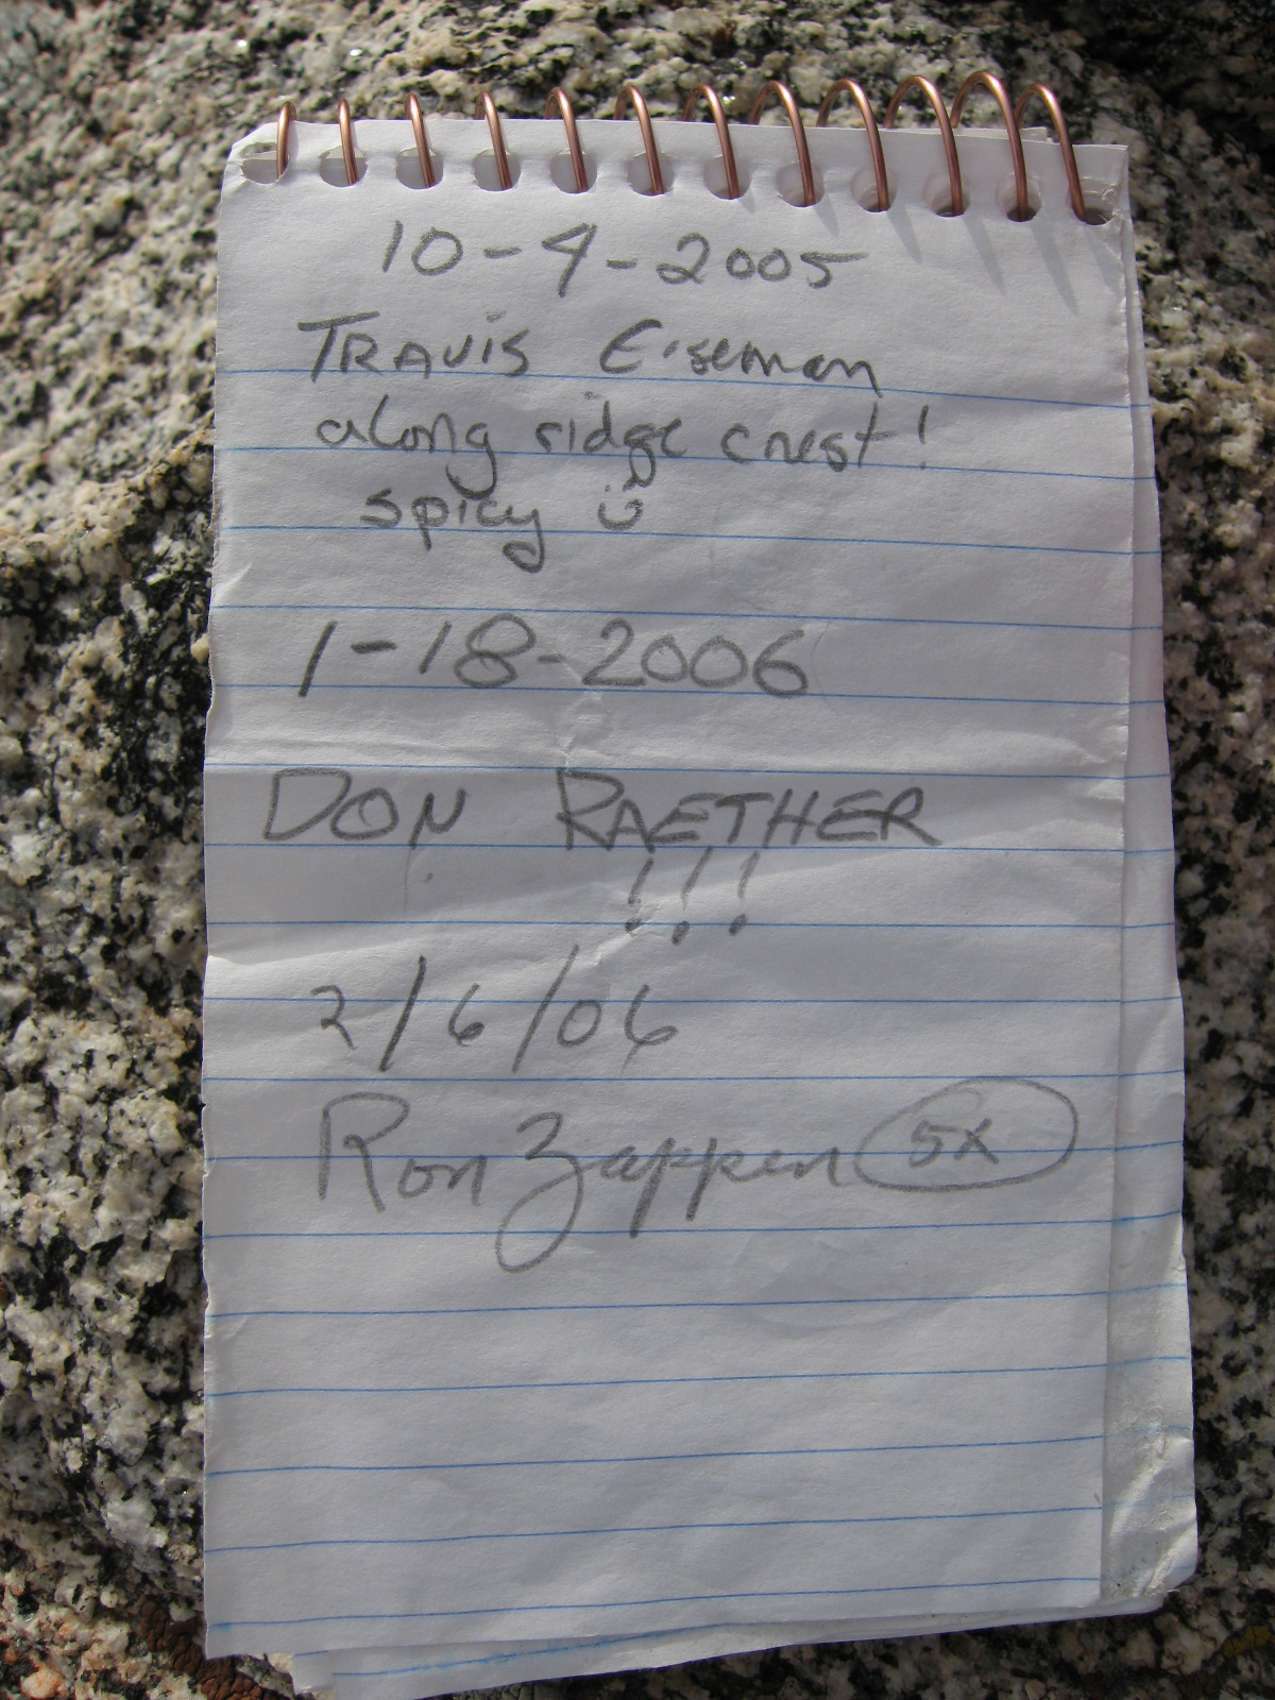 10-4-2005
TRAVIS Eiseman
along ridge crest!
spicy ü
1-18-2006
DON RAETHER
!!!
2/6/06
Ron Zappen 5x